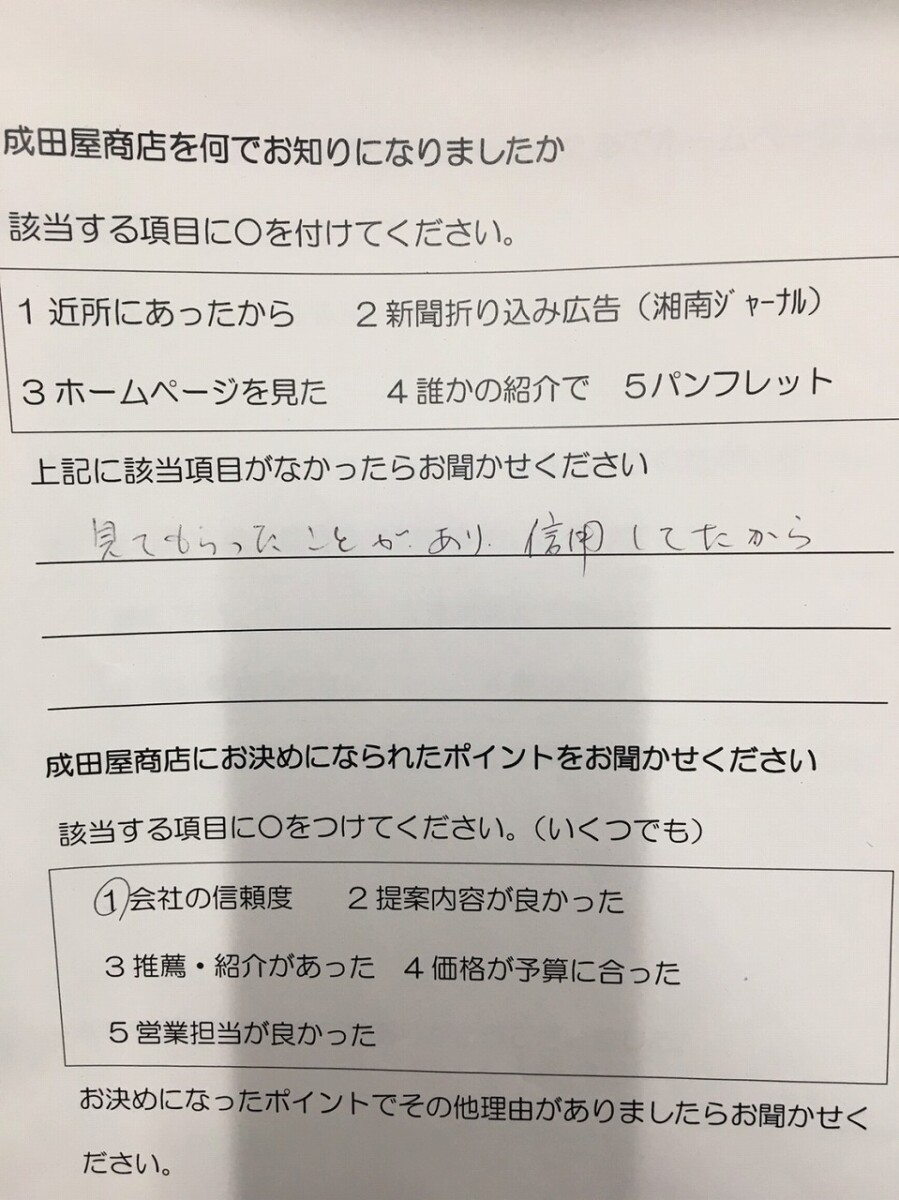 成田屋商店を何でお知りになりましたか
該当する項目に〇を付けてください。
1 近所にあったから 2 新聞折り込み広告（湘南ｼﾞｬｰﾅﾙ）
3 ホームページを見た 4 誰かの紹介で 5パンフレット
上記に該当項目がなかったらお聞かせください
見てもらったことがあり. 信用してたから
成田屋商店にお決めになられたポイントをお聞かせください
該当する項目に〇をつけてください。（いくつでも）
1 会社の信頼度 2 提案内容が良かった
3 推薦・紹介があった 4 価格が予算に合った
5 営業担当が良かった
お決めになったポイントでその他理由がありましたらお聞かせく
ださい。